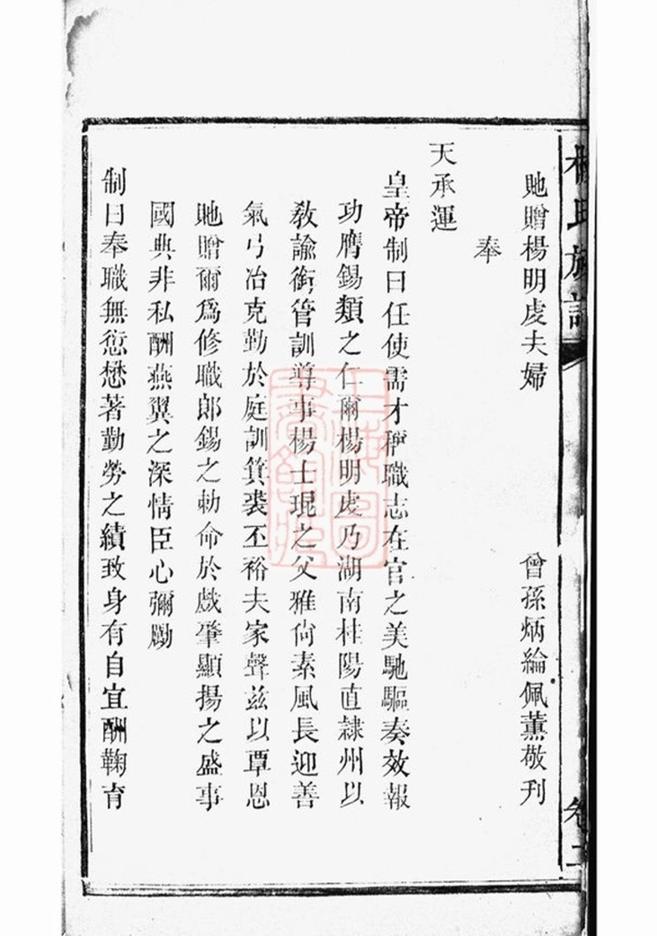 楊氏族譜
卷二
貤贈楊明䖍夫婦
曾孫炳綸佩薰敬刊
奉
天承運
皇帝制曰任使需才稱職志在官之美馳驅奏效報
功膺錫類之仁爾楊明䖍乃湖南桂陽直隸州以
敎諭銜管訓導事楊士琨之父雅尙素風長迎善
氣弓冶克勤於庭訓箕裘丕裕夫家聲茲以覃恩
貤贈爾爲修職郎錫之勅命於戲肇顯揚之盛事
國典非私酬燕翼之深情臣心彌勵
制曰奉職無愆懋著勤勞之績致身有自宜酬鞠育